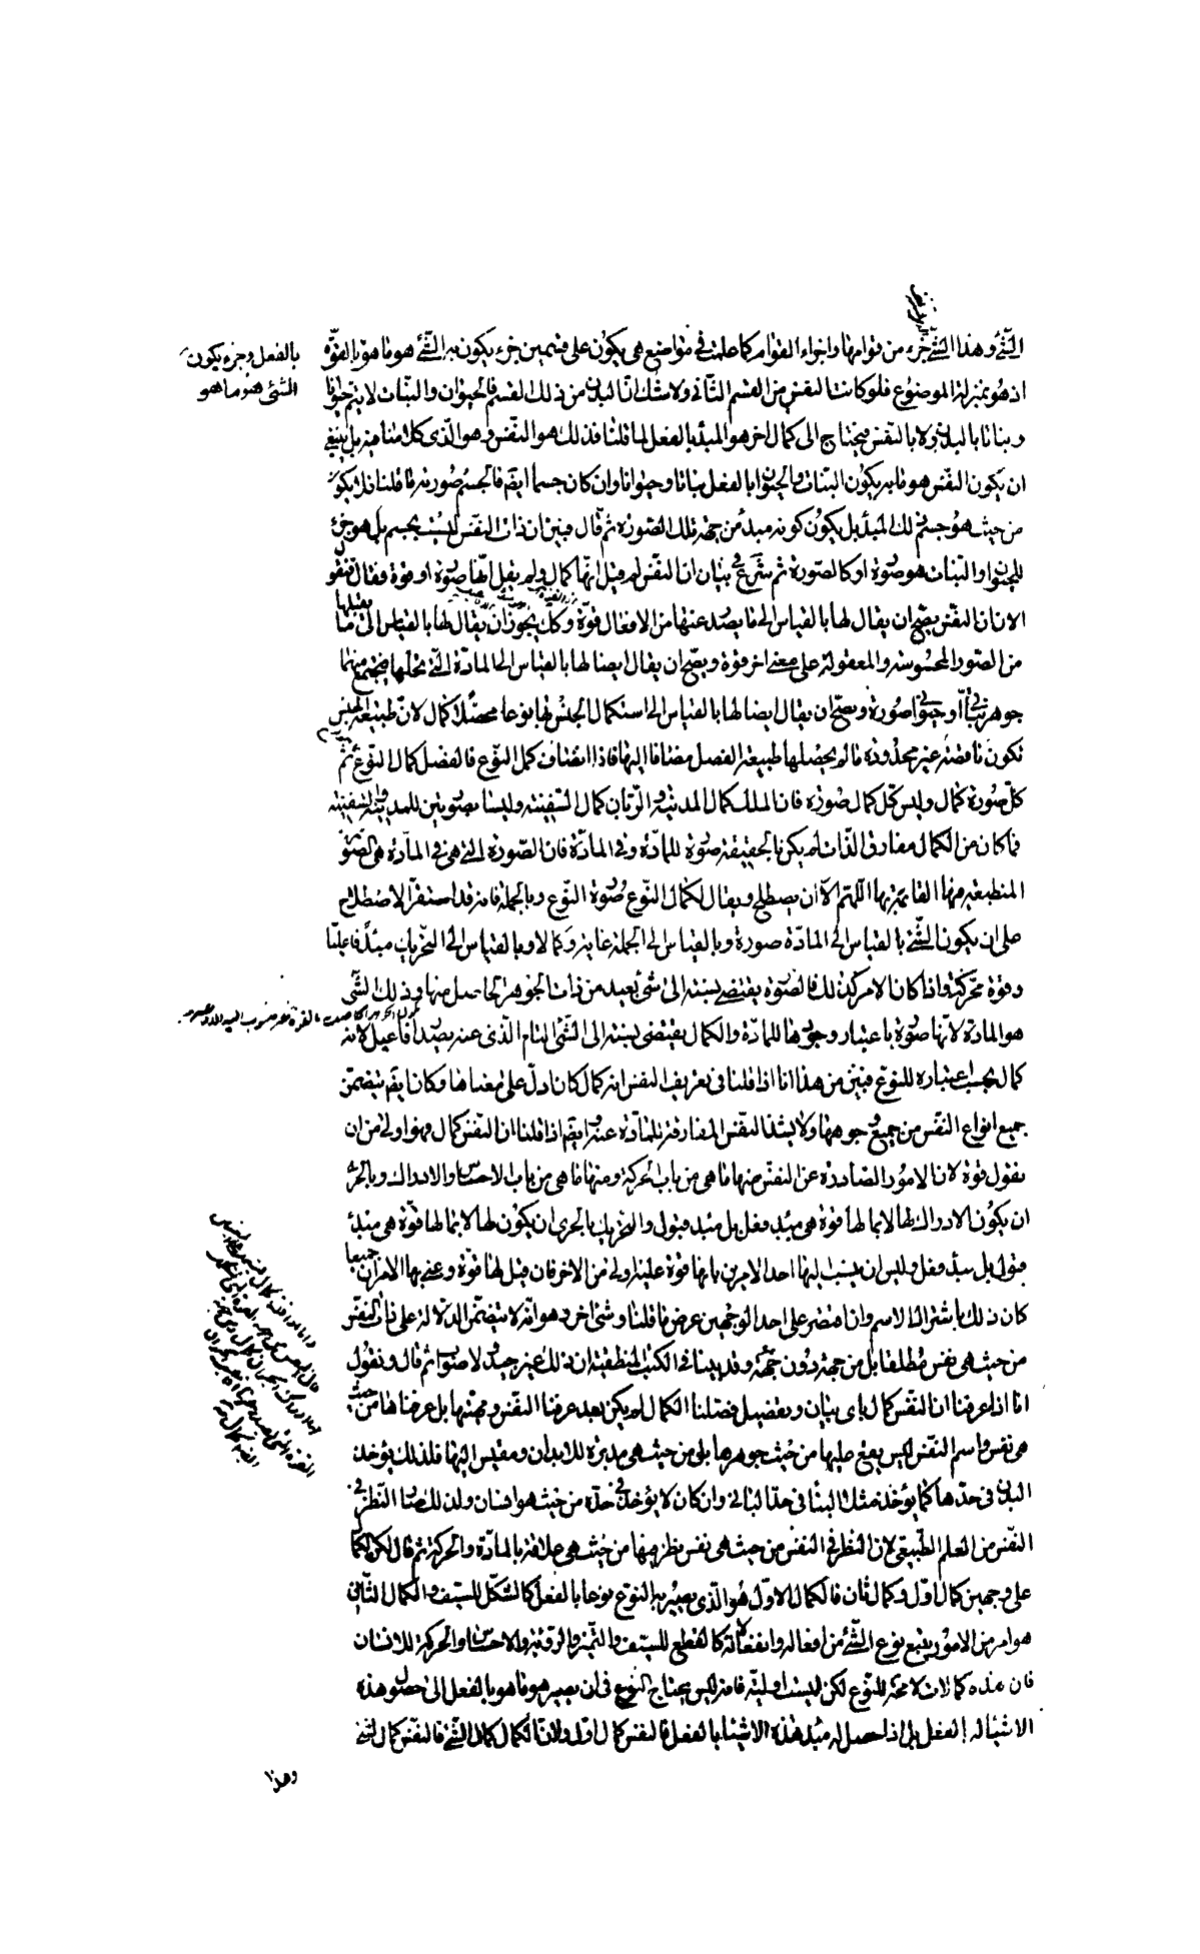 الشئ وهذا الشئ جزء من قوامها واجزاء القوام كما علمت فى مواضع هى يكون على قسمين جزء يكون به الشئ هو ما هو بالقوة
بالفعل وجزء يكون
الشئ هو ما هو
اذ هو بمنزلة الموضوع فلو كانت النفس من القسم الثانى ولا شك ان البدن من ذلك القسم فالحيوان والنبات لا يتم حيوانا
ونباتا بالبدن ولا بالنفس فيحتاج الى كمال اخر هو المبدأ بالفعل لما قلنا فذلك هو النفس وهو الذى كلامنا فيه بل ينبغى
ان يكون النفس هو ما به يكون النبات والحيوان بالفعل نباتا وحيوانا وان كان جسما ايضا فالجسم صورته ما قلنا فلا يكون
من حيث هو جسم ذلك المبدأ بل يكون كونه مبدأ من جهة تلك الصورة ثم قال فبين ان ذات النفس ليست بجسم بل هو جزء
للحيوان والنبات هو صورة او كالصورة ثم شرع فى بيان ان النفس لم قيل انها كمال ولم يقل انها صورة او قوة فقال فنقول
الان ان النفس يصح ان يقال لها بالقياس الى ما يصدر عنها من الافعال قوة وكك يجوز ان يقال لها بالقياس الى ما يقبلها
من الصور المحسوسة والمعقولة على معنى اخر قوة ويصح ان يقال ايضا لها بالقياس الى المادة التى تحلها فيجتمع منهما
جوهر نباتى او حيوانى صورة ويصح ان يقال ايضا لها بالقياس الى استكمال الجنس بها نوعا محصلا كمال لان طبيعة الجنس
تكون ناقصة غير محدودة ما لم يحصلها طبيعة الفصل مضافا اليها فاذا انضاف كمل النوع فالفصل كمال النوع ثم
كل صورة كمال وليس كل كمال صورة فان الملك كمال المدينة والربان كمال السفينة وليسا بصورتين للمدينة والسفينة
فما كان من الكمال مفارق الذات لم يكن بالحقيقة صورة للمادة وفى المادة فان الصورة التى هى فى المادة هى الصورة
المنطبعة فيها القائمة بها اللهم الا ان يصطلح ويقال لكمال النوع صورة النوع وبالجملة فانه قد استقر الاصطلاح
على ان يكون الشئ بالقياس الى المادة صورة وبالقياس الى الجملة غاية وكمالا وبالقياس الى التحريك مبدأ فاعليا
وقوة محركة واذا كان الامر كذلك فالصورة يقتضى نسبة الى شئ بعيد من ذات الجوهر الحاصل منها وذلك الشئ
هو المادة لانها صورة باعتبار وجودها للمادة والكمال يقتضى نسبة الى الشئ التام الذى عنه يصدر الافاعيل لانه
كمال بحسب اعتباره للنوع فبين من هذا انا اذا قلنا فى تعريف النفس انه كمال كان ادل على معناها وكان ايضا يتضمن
جميع انواع النفس من جميع وجوهها ولا يشذ النفس المفارقة للمادة عنه وايضا اذا قلنا ان النفس كمال فهو اولى من ان
نقول قوة لان الامور الصادرة عن النفس منها ما هى من باب الحركة ومنها ما هى من باب الاحساس والادراك وبالحرى
ان يكون الادراك لها لا بما لها قوة هى مبدأ فعل بل مبدأ قبول والتحريك بالحرى ان يكون لها لا بما لها قوة هى مبدأ
قبول بل مبدأ فعل وليس ان ينسب اليها احد الامرين بانها قوة عليه اولى من الاخر فان قيل لها قوة وعنى بها الامران جميعا
كان ذلك باشتراك الاسم وان اقتصر على احد الوجهين عرض ما قلنا وشئ اخر وهو انه لا يتضمن الدلالة على ذات النفس
من حيث هى نفس مطلقا بل من جهة دون جهة وقد بينا فى الكتب المنطقية ان ذلك غير جيد ولا صواب ثم قال ونقول
انا اذا عرفنا ان النفس كمال باى بيان وتفصيل فصلنا الكمال لم يكن بعد عرفنا النفس ومهيتها بل عرفناها من حيث
هى نفس واسم النفس ليس يقع عليها من حيث جوهرها بل من حيث هى مدبرة للابدان ومقيس اليها فلذلك يؤخذ
البدن فى حدها كما يؤخذ مثلا البناء فى حد البانى وان كان لا يؤخذ فى حده من حيث هو انسان ولذلك صار النظر فى
النفس من العلم الطبيعى لان النظر فى النفس من حيث هى نفس نظر فيها من حيث هى علاقة بالمادة والحركة ثم قال لكن الكمال
على وجهين كمال اول وكمال ثان فالكمال الاول هو الذى يصير به النوع نوعا بالفعل كالشكل للسيف والكمال الثانى
هو امر من الامور يتبع نوع الشئ من افعاله وانفعالاته كالقطع للسيف والتميز والروية والاحساس والحركة للانسان
فان هذه كمالات لا محة للنوع لكن ليست اولية فانه ليس يحتاج النوع فى ان يصير هو ما هو بالفعل الى حصول هذه
الاشياء له بالفعل بل اذا حصل له مبدأ هذه الاشياء بالفعل فالنفس كمال اول ولان الكمال كمال الشئ فالنفس كمال الشئ
وهذا